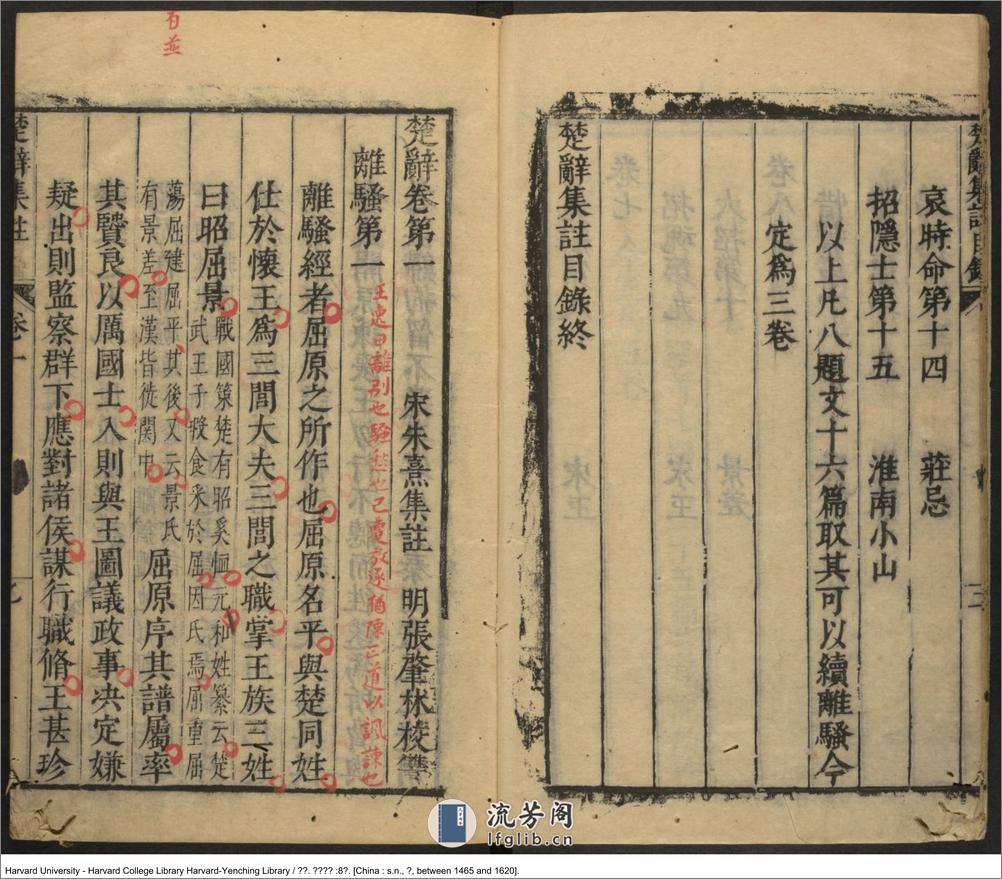 楚辭集註目錄
哀時命第十四 莊忌
招隱士第十五 淮南小山
以上凡八題文十六篇取其可以續離騷今
定為三卷
楚辭集註目錄終
楚辭卷第一 宋朱熹集註 明張肇林校讐
離騷第一
王逸曰離別也騷愁也己
猶陳正道以諷諫也
離騷經者屈原之所作也屈原名平與楚同姓
仕於懷王為三閭大夫三閭之職掌王族三姓
曰昭屈景
戰國策楚有昭奚恤元和姓纂云楚
武王子瑕食采於屈因氏焉屈重屈
蕩屈建屈平其後又云景氏
有景差至漢皆徙関中
屈原序其譜屬率
其賢良以厲國士入則與王圖議政事决定嫌
疑出則監察群下應對諸侯謀行職脩王甚珍
楚辭集註
卷一
流芳阁
lfglib.cn
Harvard University - Harvard College Library Harvard-Yenching Library / ??. ???? :8?. [China : s.n., ?, between 1465 and 1620].